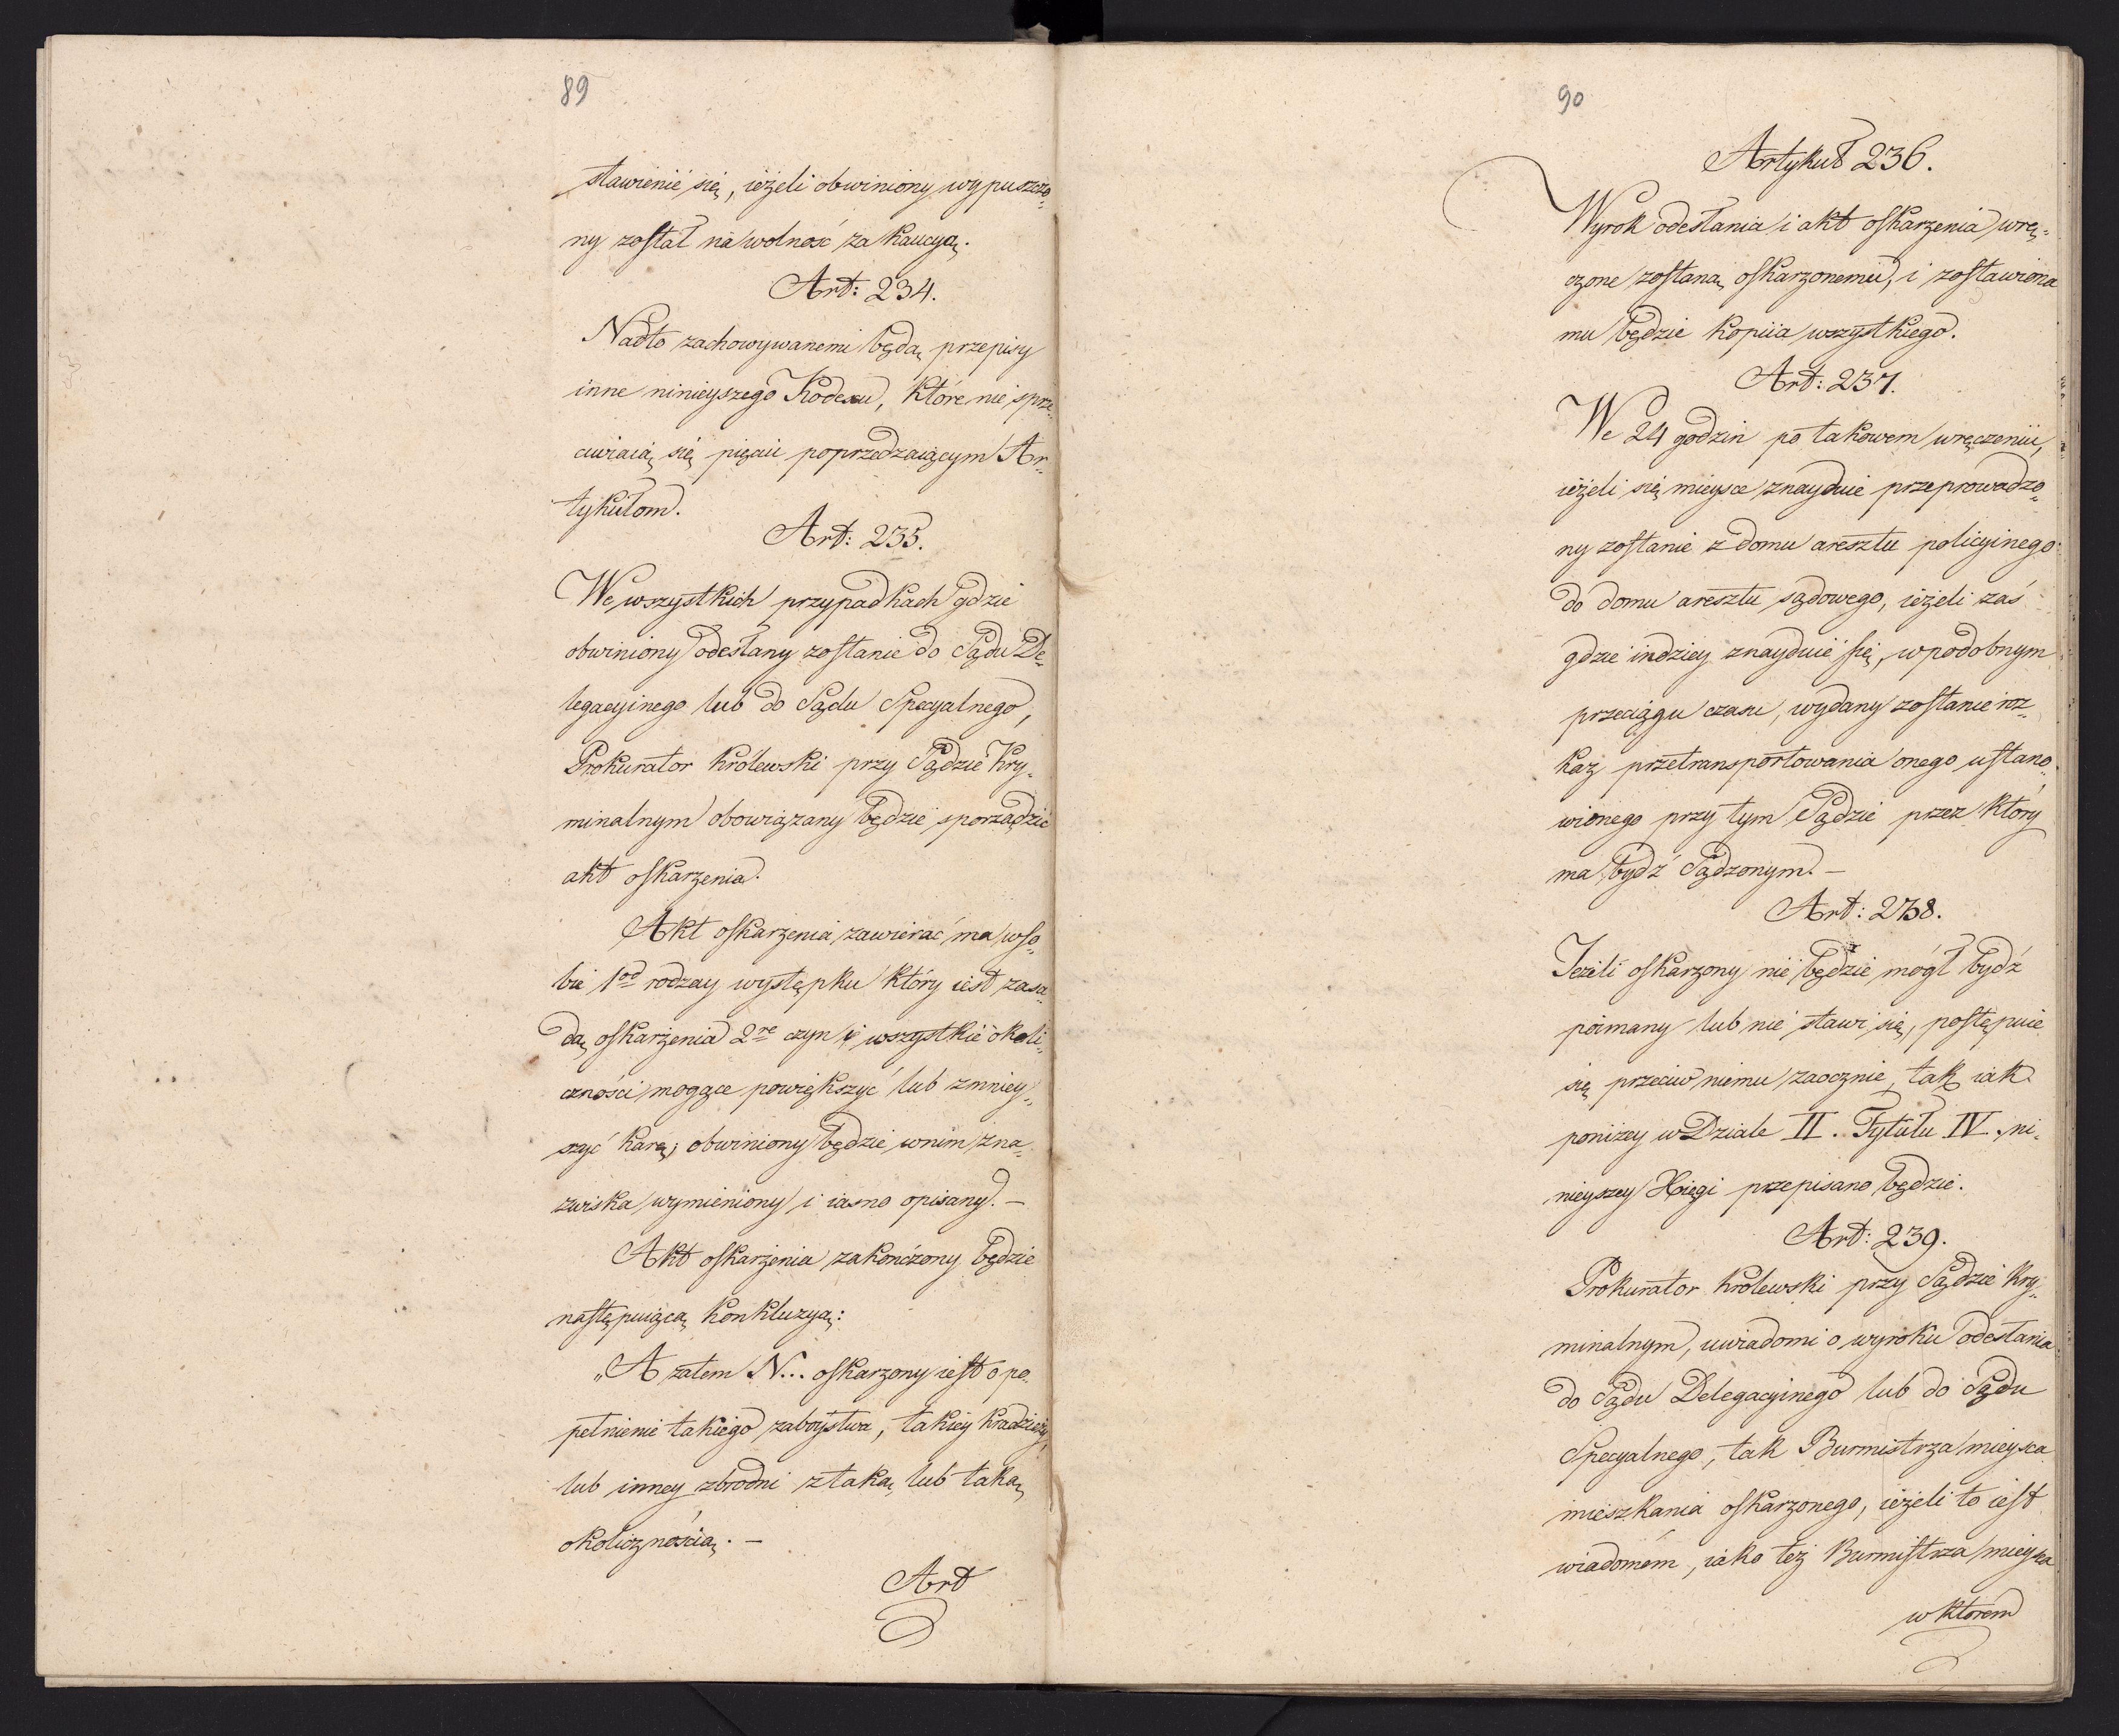 89
stawienié się, ieżeli obwiniony wypuszczo=
ny został na wolność za kaucyą.
Art: 234.
Nadto zachowywanemi będą przepisy
inne ninieyszego Kodexu, które nie sprze=
ciwiaią się pięciu poprzedzaiącym Ar=
tykułom.
Art: 235.
We wszystkich przypadkach gdzie
obwiniony odesłany zostanie do Sądu De=
legacyinego lub do Sądu Specyalnego,
Prokurator Królewski przy Sądzie Kry=
minalnym obowiązany będzie sporządzić
akt oskarzenia.
Akt oskarzenia zawierać ma w so=
bie 1od rodzay występku który iest zasa=
dą oskarżenia 2re czyn i wszystkie okoli=
czności mogące powiększyć lub zmniey=
szyć karę; obwiniony będzie w nim zna=
zwiska wymieniony i iasno opisany. —
Akt oskarżenia zakończony będzie
następuiącą konkluzyą:
„A zatem N... oskarzony iest o po=
pełnienie takiego zaboystwa, takiey kradzieży,
lub inney zbrodni z taką lub taką
okolicznością. —
Art
90
Artykuł 236.
Wyrok odesłania i akt oskarzenia wrę=
czone zostaną oskarzonemu, i zostawiona
mu będzie kopiia wszystkiego.
Art: 237.
We 24 godzin po takowem wręczeniu,
ieżeli się mieysce znayduie przeprowadzo=
ny zostanie z domu aresztu policyinego
do domu aresztu sądowego, ieżeli zaś
gdzie indziey znayduie się, w podobnym
przeciągu czasu, wydany zostanie roz=
kaz przetransportowania onego ustano=
wionego przy tym Sądzie przez który
ma bydź Sądzonym. —
Art: 238.
Jeżili oskarzony nie będzie mógł bydź
poimany lub nie stawi się, postępuie
się przeciw niemu zaocznie, tak iak
poniżey w Dziale II. Tytułu IV. ni=
nieyszey Xięgi przepisano będzie.
Art: 239.
Prokurator Królewski przy Sądzie Kry=
minalnym, uwiadomi o wyroku odesłania
do Sądu Delegacyinego lub do Sądu
Specyalnego, tak Burmistrza mieysca
mieszkania oskarzonego, ieżeli to iest
wiadomém, iako też Burmistrza mieysca
w którém